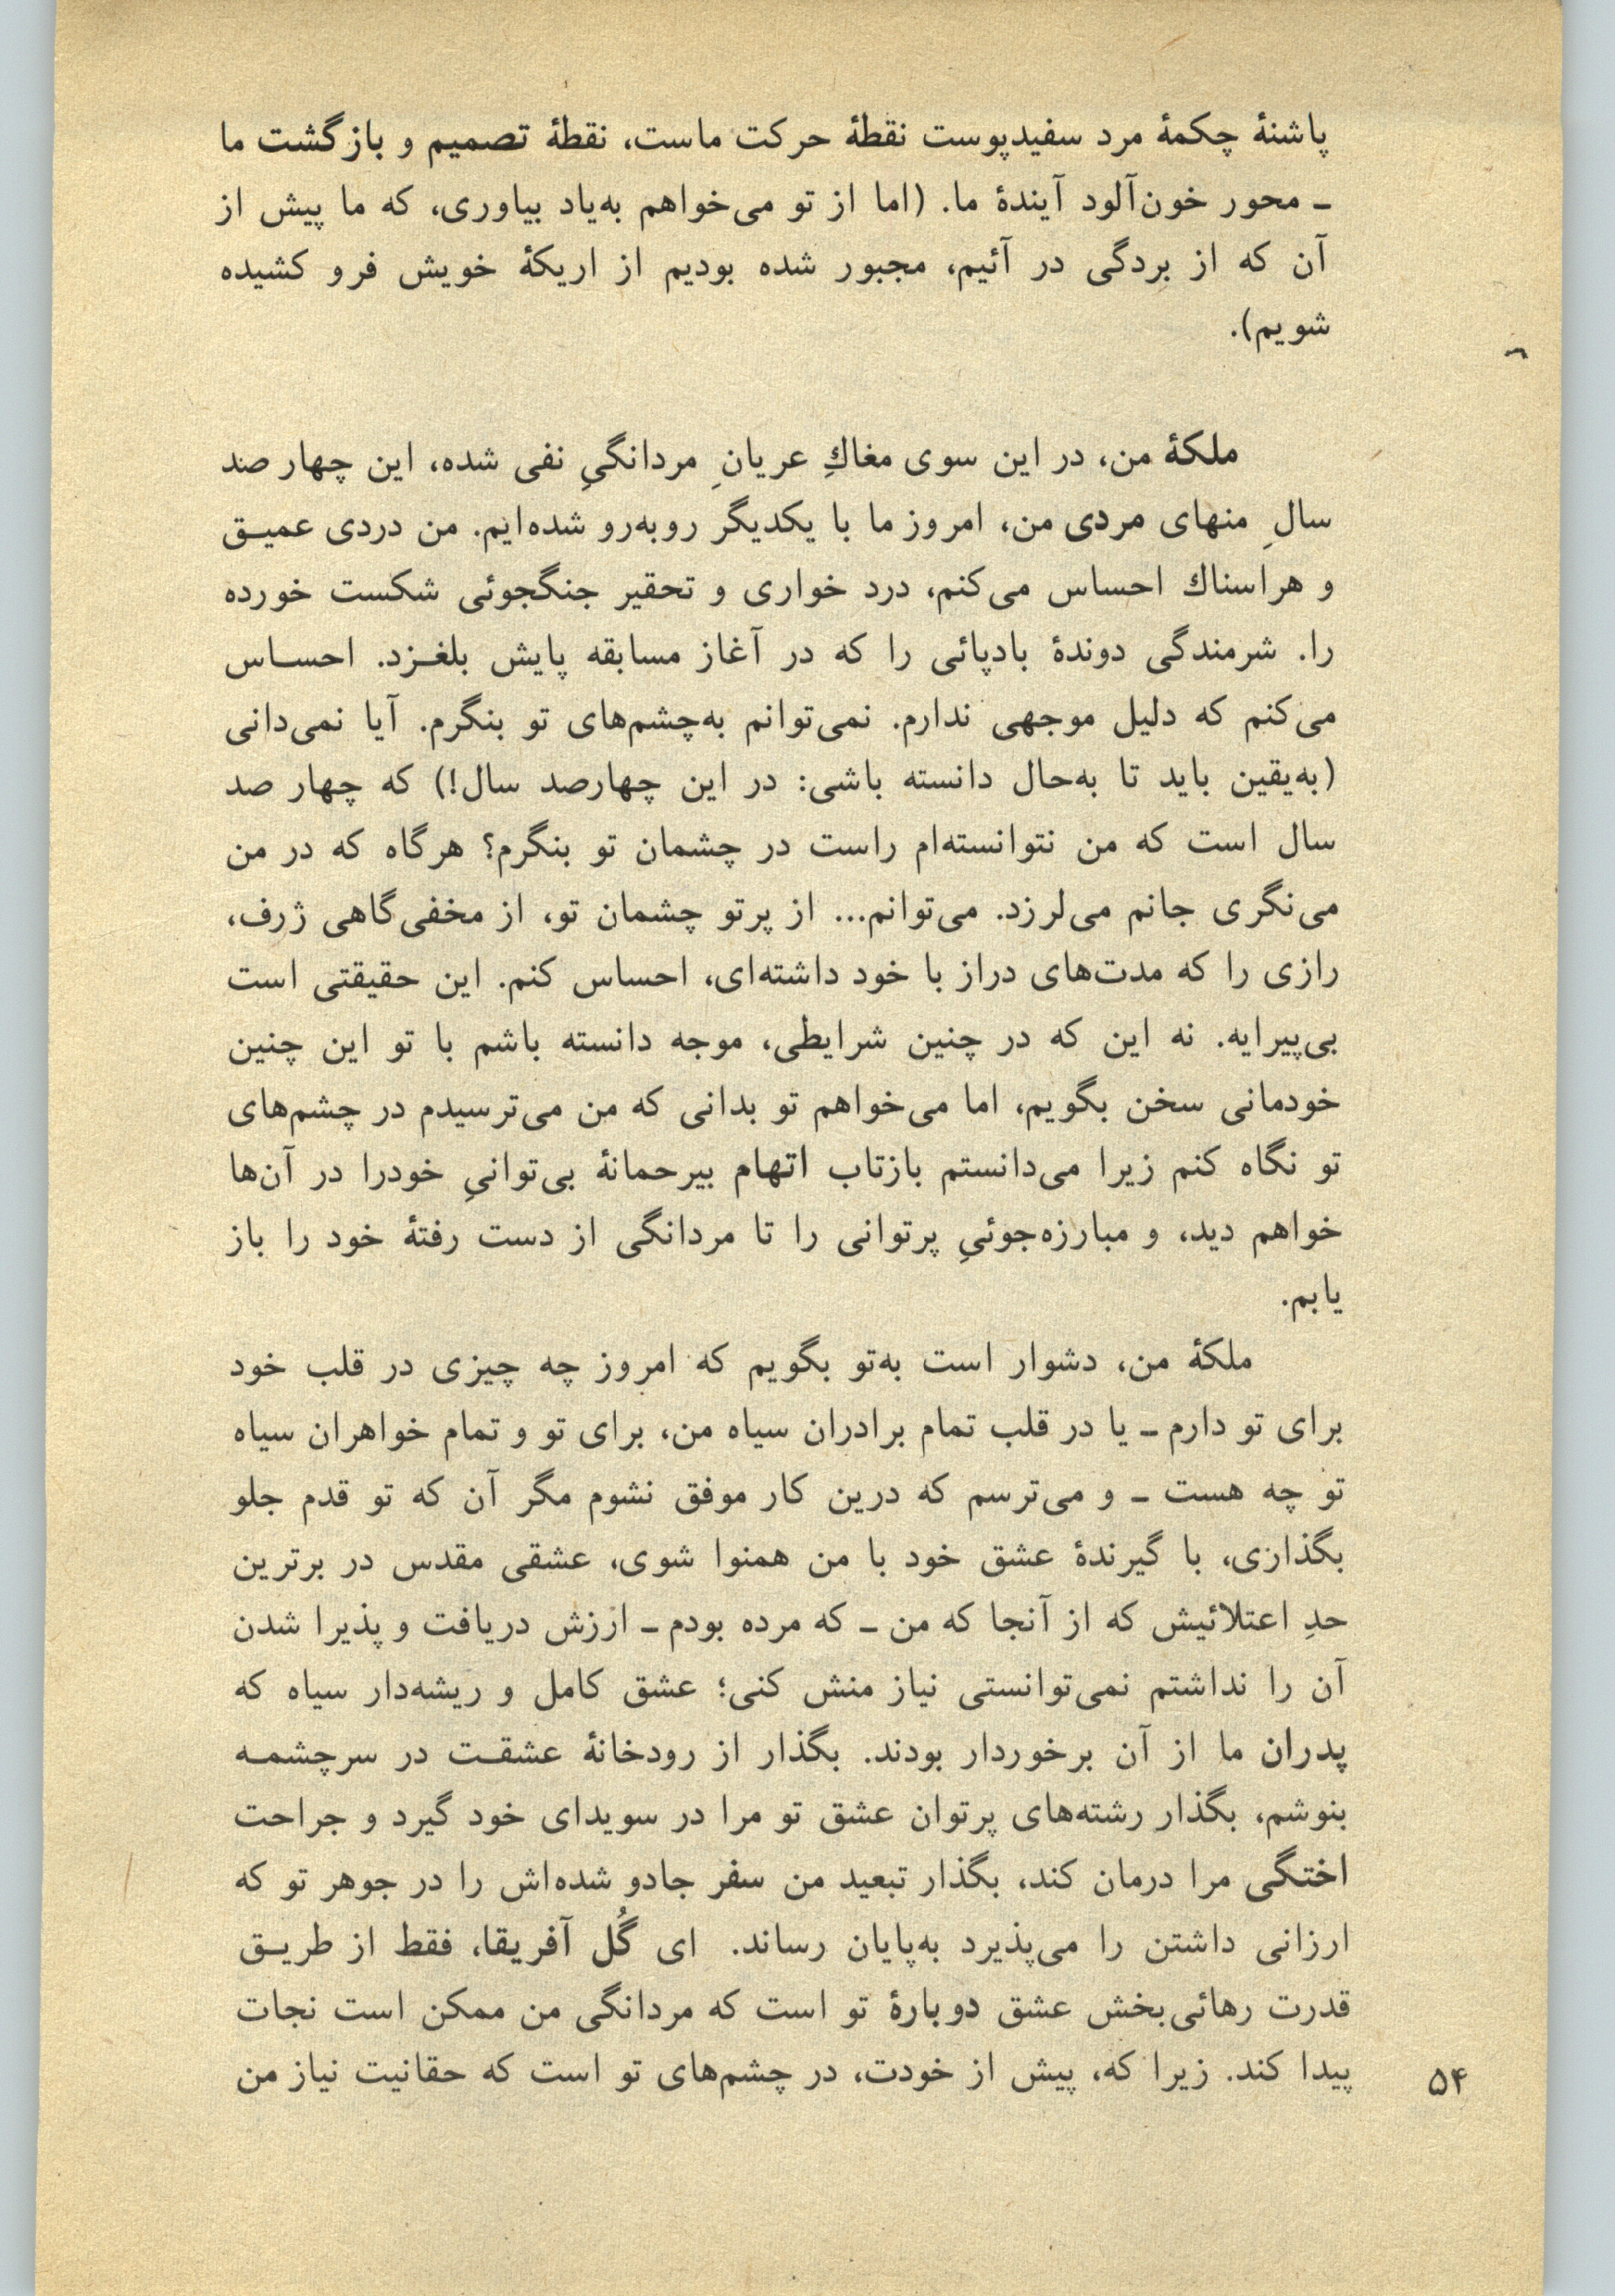 پاشنهٔ چکمهٔ مرد سفیدپوست نقطهٔ حرکت ماست، نقطهٔ تصمیم و بازگشت ما
ـ محور خون‌آلود آیندهٔ ما. (اما از تو می‌خواهم به‌یاد بیاوری، که ما پیش از
آن که از بردگی در آئیم، مجبور شده بودیم از اریکهٔ خویش فرو کشیده
شویم).
ملکهٔ من، در این سوی مغاكِ عریانِ مردانگیِ نفی شده، این چهار صد
سالِ منهای مردی من، امروز ما با یکدیگر روبه‌رو شده‌ایم. من دردی عمیـق
و هراسناك احساس می‌کنم، درد خواری و تحقیر جنگجوئی شکست خورده
را. شرمندگی دوندهٔ بادپائی را که در آغاز مسابقه پایش بلغـزد. احسـاس
می‌کنم که دلیل موجهی ندارم. نمی‌توانم به‌چشم‌های تو بنگرم. آیا نمی‌دانی
(به‌یقین باید تا به‌حال دانسته باشی: در این چهارصد سال!) که چهار صد
سال است که من نتوانسته‌ام راست در چشمان تو بنگرم؟ هرگاه که در من
می‌نگری جانم می‌لرزد. می‌توانم... از پرتو چشمان تو، از مخفی‌گاهی ژرف،
رازی را که مدت‌های دراز با خود داشته‌ای، احساس کنم. این حقیقتی است
بی‌پیرایه. نه این که در چنین شرایطی، موجه دانسته باشم با تو این چنین
خودمانی سخن بگویم، اما می‌خواهم تو بدانی که من می‌ترسیدم در چشم‌های
تو نگاه کنم زیرا می‌دانستم بازتاب اتهام بیرحمانهٔ بی‌توانیِ خودرا در آن‌ها
خواهم دید، و مبارزه‌جوئیِ پرتوانی را تا مردانگی از دست رفتهٔ خود را باز
یابم.
ملکهٔ من، دشوار است به‌تو بگویم که امروز چه چیزی در قلب خود
برای تو دارم ـ یا در قلب تمام برادران سیاه من، برای تو و تمام خواهران سیاه
تو چه هست ـ و می‌ترسم که درین کار موفق نشوم مگر آن که تو قدم جلو
بگذازی، با گیرندهٔ عشق خود با من همنوا شوی، عشقی مقدس در برترین
حدِ اعتلائیش که از آنجا که من ـ که مرده بودم ـ ارزش دریافت و پذیرا شدن
آن را نداشتم نمی‌توانستی نیاز منش کنی؛ عشق کامل و ریشه‌دار سیاه که
پدران ما از آن برخوردار بودند. بگذار از رودخانهٔ عشقـت در سرچشمـه
بنوشم، بگذار رشته‌های پرتوان عشق تو مرا در سویدای خود گیرد و جراحت
اختگی مرا درمان کند، بگذار تبعید من سفر جادو شده‌اش را در جوهر تو که
ارزانی داشتن را می‌پذیرد به‌پایان رساند. ای گُل آفریقا، فقط از طریـق
قدرت رهائی‌بخش عشق دوبارهٔ تو است که مردانگی من ممکن است نجات
پیدا کند. زیرا که، پیش از خودت، در چشم‌های تو است که حقانیت نیاز من
۵۴